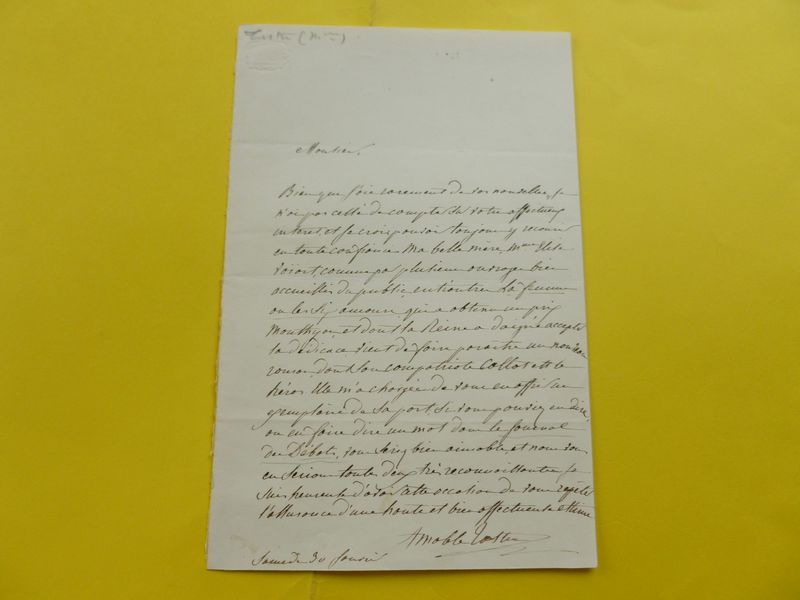 Tastu (Mme)
Monsieur,
Bien que j'aie rarement de vos nouvelles, je
n'ai pas cessé de compter sur votre affectueux
intérêt, et je crois pouvoir toujours y recourir
en toute confiance. Ma belle mère, Mme Elise
Voïart, connue par plusieurs ouvrages bien
accueillis du public, entr'autres La femme
ou les Six amours, qui a obtenu un prix
Monthyon et dont la Reine a daigné accepter
la dédicace vient de faire paraître un nouveau
roman, dont son compatriote Callot est le
héros. Elle m'a chargée de vous en offrir un
exemplaire de sa part. Si vous pouviez en dire,
ou en faire dire un mot dans le Journal
des Débats, vous seriez bien aimable, et nous vous
en serions toutes deux très reconnaissantes. Je
suis heureuse d'avoir cette occasion de vous répéter
l'assurance d'une haute et bien affectueuse estime
Amable Tastu
Samedi 30